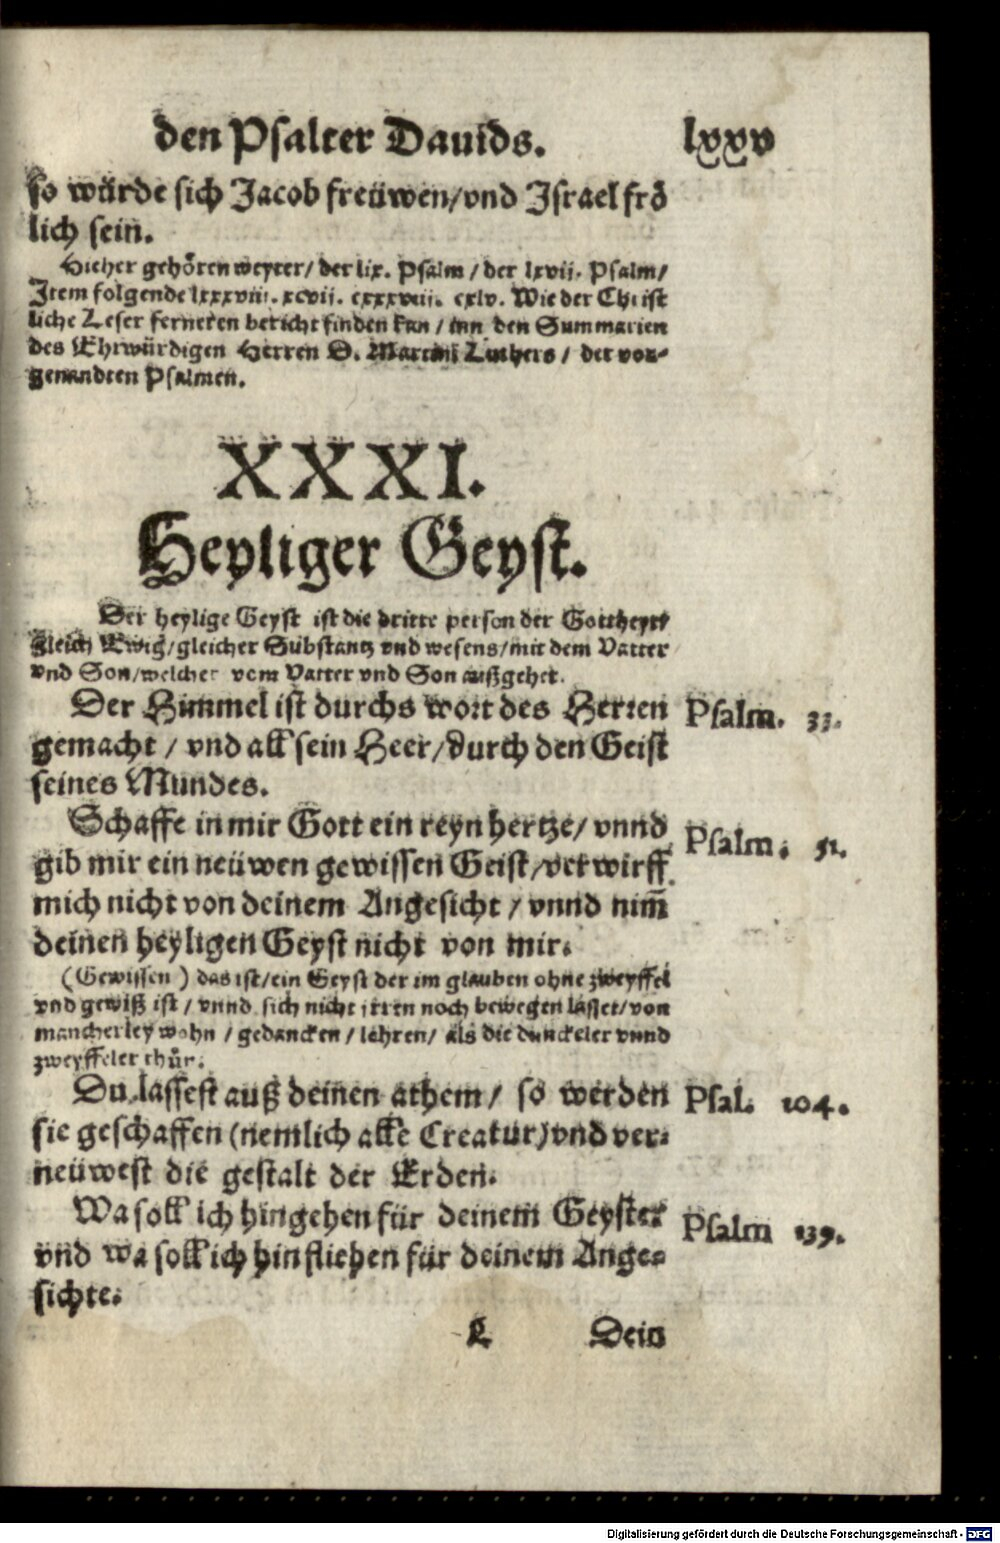 den Psalter Dauids. lxxv
so würde sich Jacob freüwen/vnd Israel frö
lich sein.
Hieher gehören weyter/ der lix. Psalm/ der lxvij. Psalm/
Item folgende lxxxviij. xcvij. cxxxviij. cxlv. Wie der Christ
liche Leser ferneren bericht finden kan/ inn den Summarien
des Ehrwürdigen Herren D. Martini Luthers/ der vor-
genandten Psalmen.
XXXI.
Heyliger Geyst.
Der heylige Geyst ist die dritte person der Gottheyt/
gleich Ewig/gleicher Substantz vnd wesens/mit dem Vatter
vnd Son/welcher vom Vatter vnd Son außgehet.
Der Himmel ist durchs wort des Herren Psalm. 33.
gemacht/ vnd all sein Heer/durch den Geist
seines Mundes.
Schaffe in mir Gott ein reyn hertze/ vnnd Psalm. 51.
gib mir ein neüwen gewissen Geist/verwirff
mich nicht von deinem Angesicht/ vnnd nim̃
deinen heyligen Geyst nicht von mir.
(Gewissen) das ist/ein Geyst der im glauben ohne zweyffel
vnd gewiß ist/ vnnd sich nicht jrren noch bewegen lasset/von
mancherley wohn/ gedancken/ lehren/ als die dunckeler vnnd
zweyffeler thůr.
Du lassest auß deinen athem/ so werden Psal. 104.
sie geschaffen (nemlich alle Creatur) vnd ver-
neüwest die gestalt der Erden.
Wa soll ich hingehen für deinem Geyster Psalm 139.
vnd wa soll ich hin fliehen für deinem Ange-
sichte.
K Dein
Digitalisierung gefördert durch die Deutsche Forschungsgemeinschaft - DFG